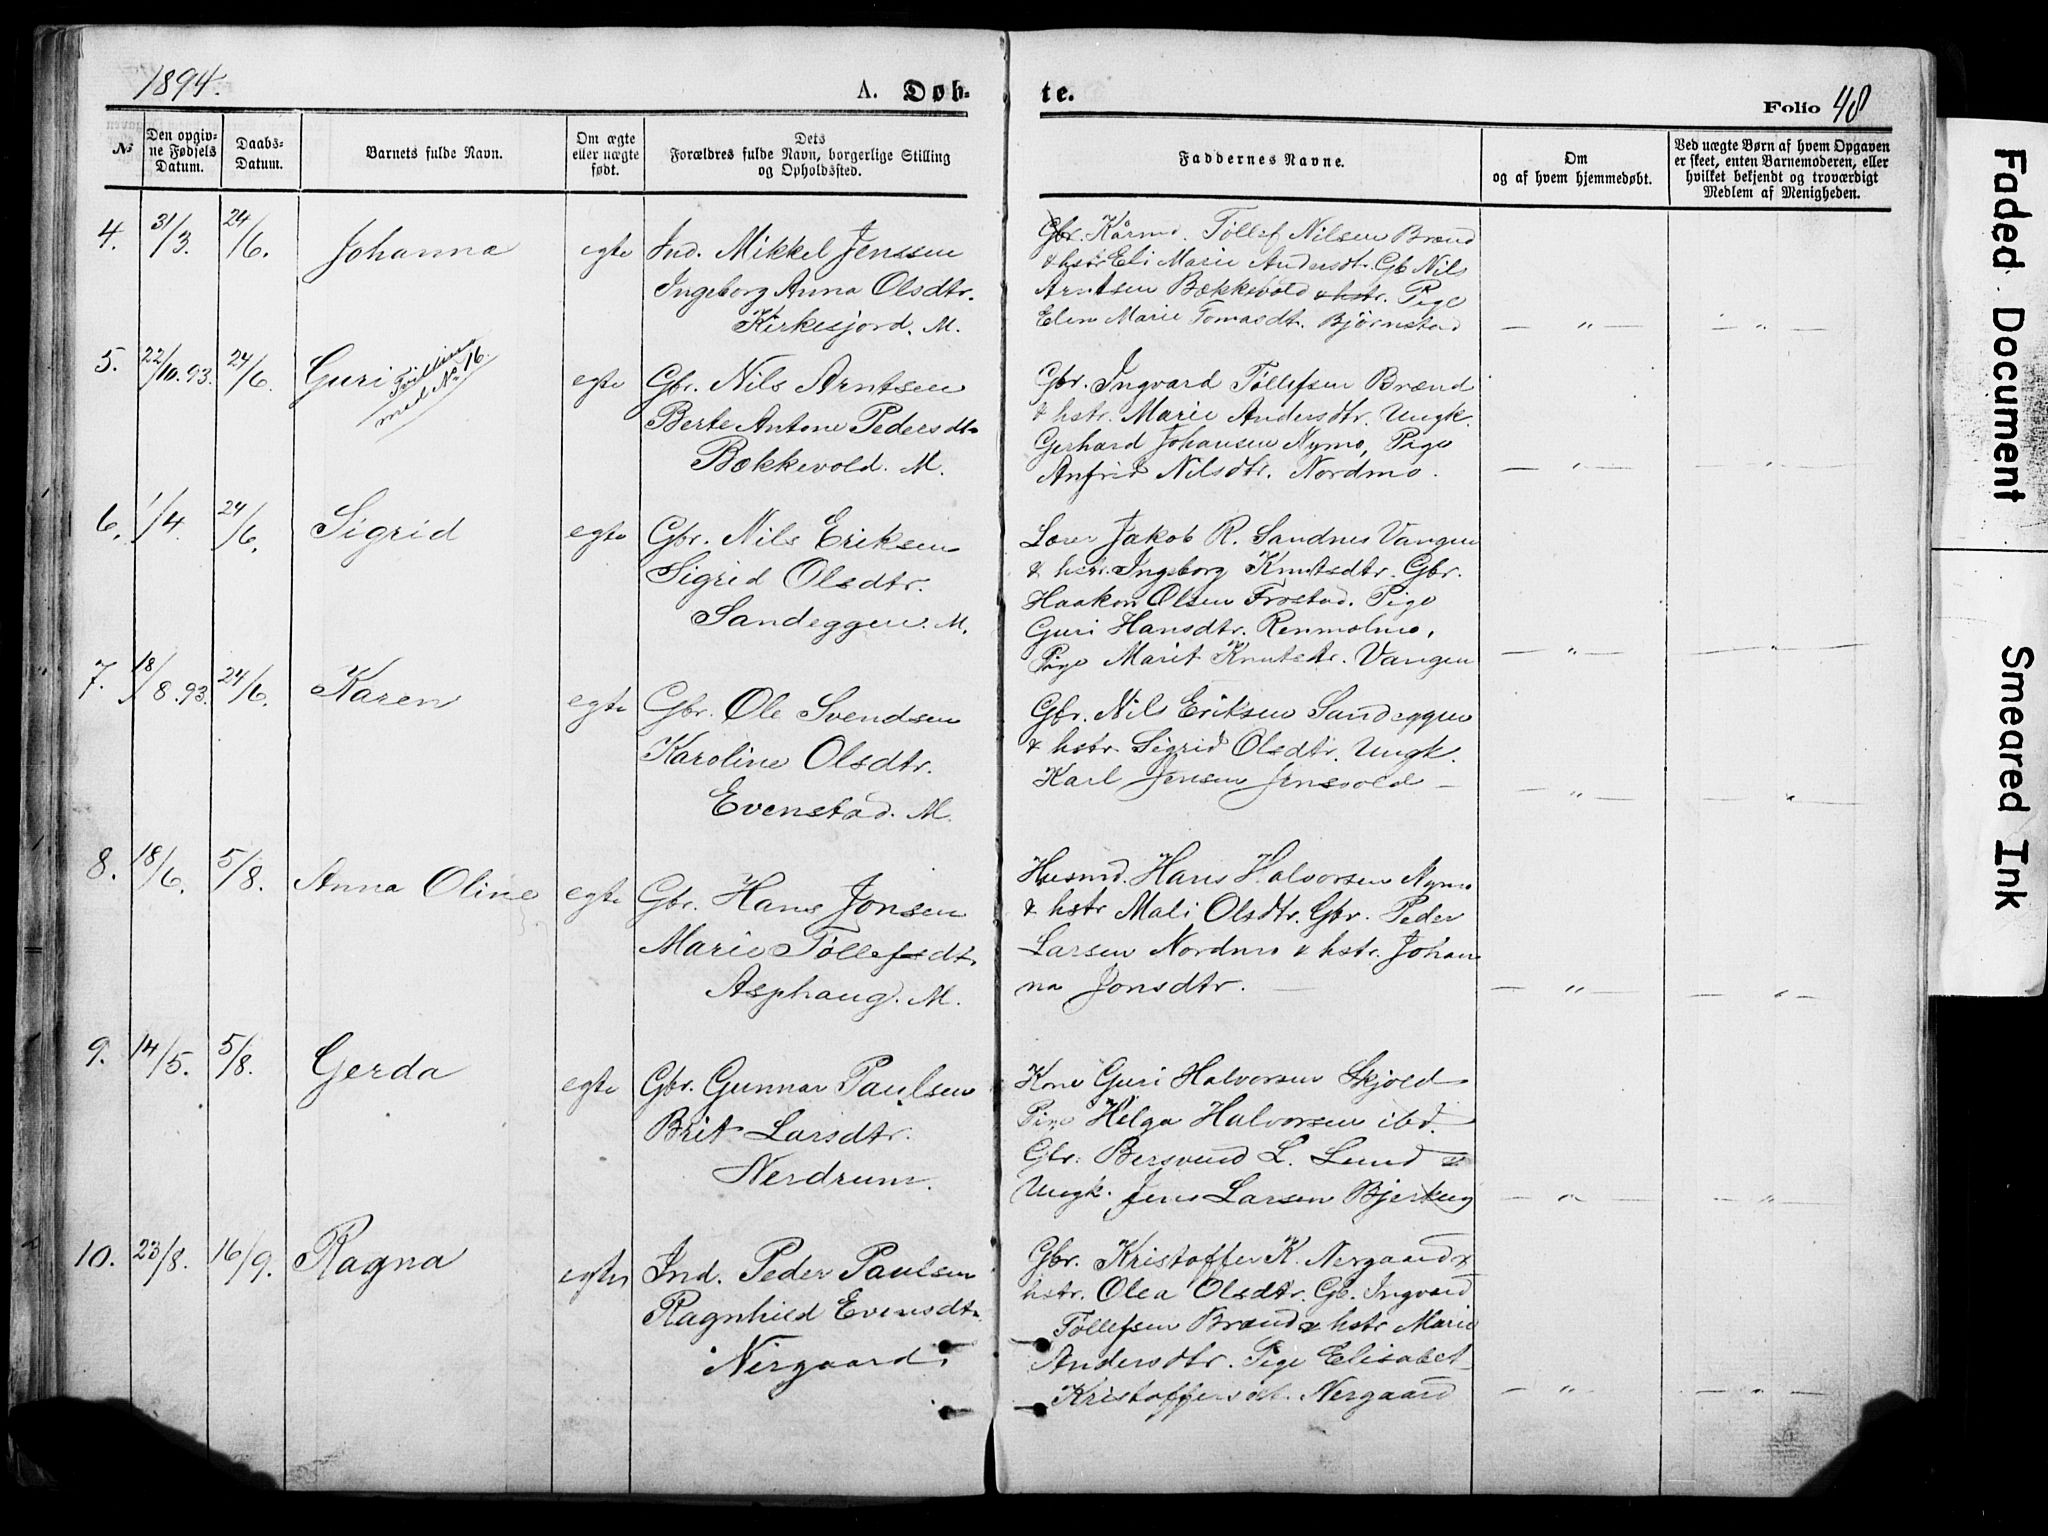 1894.
A. Døb-
te.
Folio 48
№
Den opgiv-
ne Fødsels
Datum.
Daabs-
Datum.
Barnets fulde Navn.
Om ægte
eller uægte
født.
Dets
Forældres fulde Navn, borgerlige Stilling
og Opholdssted.
Faddernes Navne.
Om
og af hvem hjemmedøbt.
Ved uægte Børn af hvem Opgaven
er skeet, enten Barnemoderen, eller
hvilket bekjendt og troværdigt
Medlem af Menigheden.
4. 31/3. 24/6. Johanna egte Ind. Mikkel Jenssen
Ingeborg Anna Olsdtr.
Kirkesjord. M.
Gbr. Kårmd. Tøllef Nilsen Brænd
& hstr Eli Marie Andersdtr. Gb Nils
Arntsen Bækkevold & hstr. Pige
Elen Marie Tomasdtr. Bjørnstad — " — — " —
5. 22/10.93. 24/6. Guri Tvilling
med No 16.
egte Gbr. Nils Arntsen
Berte Antone Pedersdtr
Bækkevold. M.
Gbr. Ingvard Tøllefsen Brænd
& hstr. Marie Andersdtr. Ungk.
Gerhard Johansen Nymo, Pige
Anfrid Nilsdtr. Nordmo. — " — — " —
6. 1/4. 24/6. Sigrid egte Gbr. Nils Eriksen
Sigrid Olsdtr.
Sandeggen. M.
Lærer Jakob R. Sandnes Vangen
& hstr. Ingeborg Knutsdtr. Gbr.
Haakon Olsen Frostad. Pige
Guri Hansdtr. Renmælmo,
Pige Marit Knutsdtr. Vangen — " — — " —
7. 18/8.93. 24/6. Karen egte Gbr. Ole Svendsen
Karoline Olsdtr.
Evenstad. M.
Gbr. Nils Eriksen Sandeggen
& hstr. Sigrid Olsdtr. Ungk.
Karl Jensen Jensvold — — " — — " —
8. 18/6. 5/8. Anna Oline egte Gbr. Hans Jonsen
Marie Tøllefsdtr
Asphaug. M.
Husmd. Hans Halvorsen Nymo
& hstr Mali Olsdtr. Gbr. Peder
Larsen Nordmo & hstr. Johan
na Jonsdtr. — — " — — " —
9. 14/5. 5/8. Gerda egte Gbr. Gunnar Paulsen
Brit Larsdtr.
Nerdrum.
Kone Guri Halvorsen Skjold
Pige Helga Halvorsen ibd.
Gbr. Bersvend L. Lund &
Ungk. Jens Larsen Bjerkeng — " — — " —
10. 23/8. 16/9. Ragna egte Ind. Peder Paulsen
Ragnhild Evensdtr
Nergaard.
Gbr. Kristoffer K. Nergaard &
hstr. Olea Olsdtr. Gb. Ingvard
Tøllefsen Brænd & hstr Marie
Andersdtr. Pige Elisabet
Kristoffersdt. Nergaard — " — — " —
Faded Document
Smeared Ink